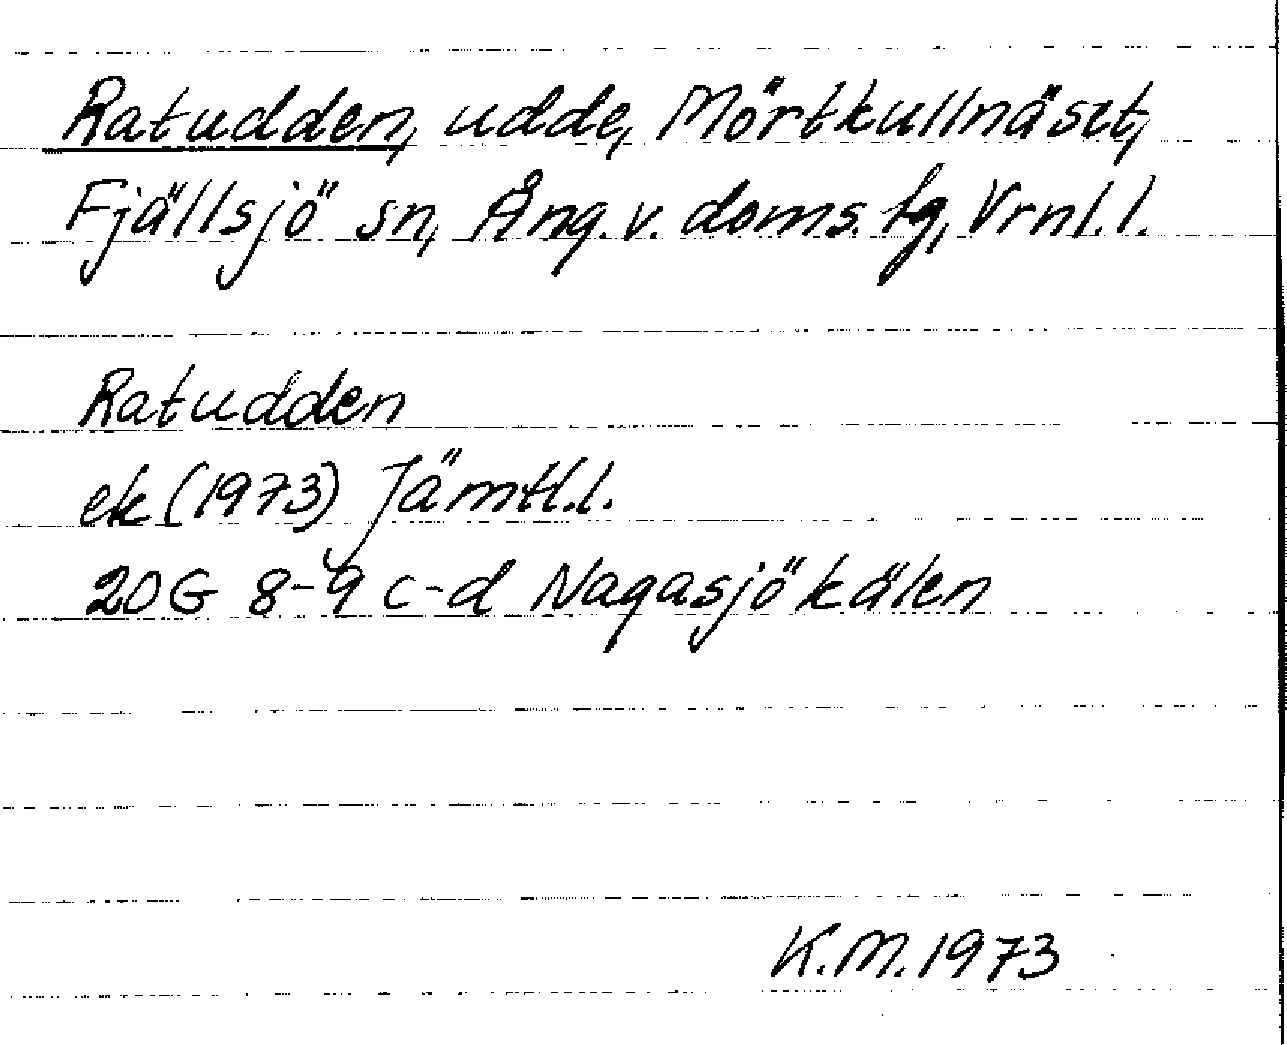 Ratudden, udde, Mörtkullnäset,
Fjällsjö sn, Ång. v. doms. tg, Vrnl. l.
Ratudden
ek (1973) Jämtl. l.
20G 8-9 c-d Nagasjökälen
K.M. 1973